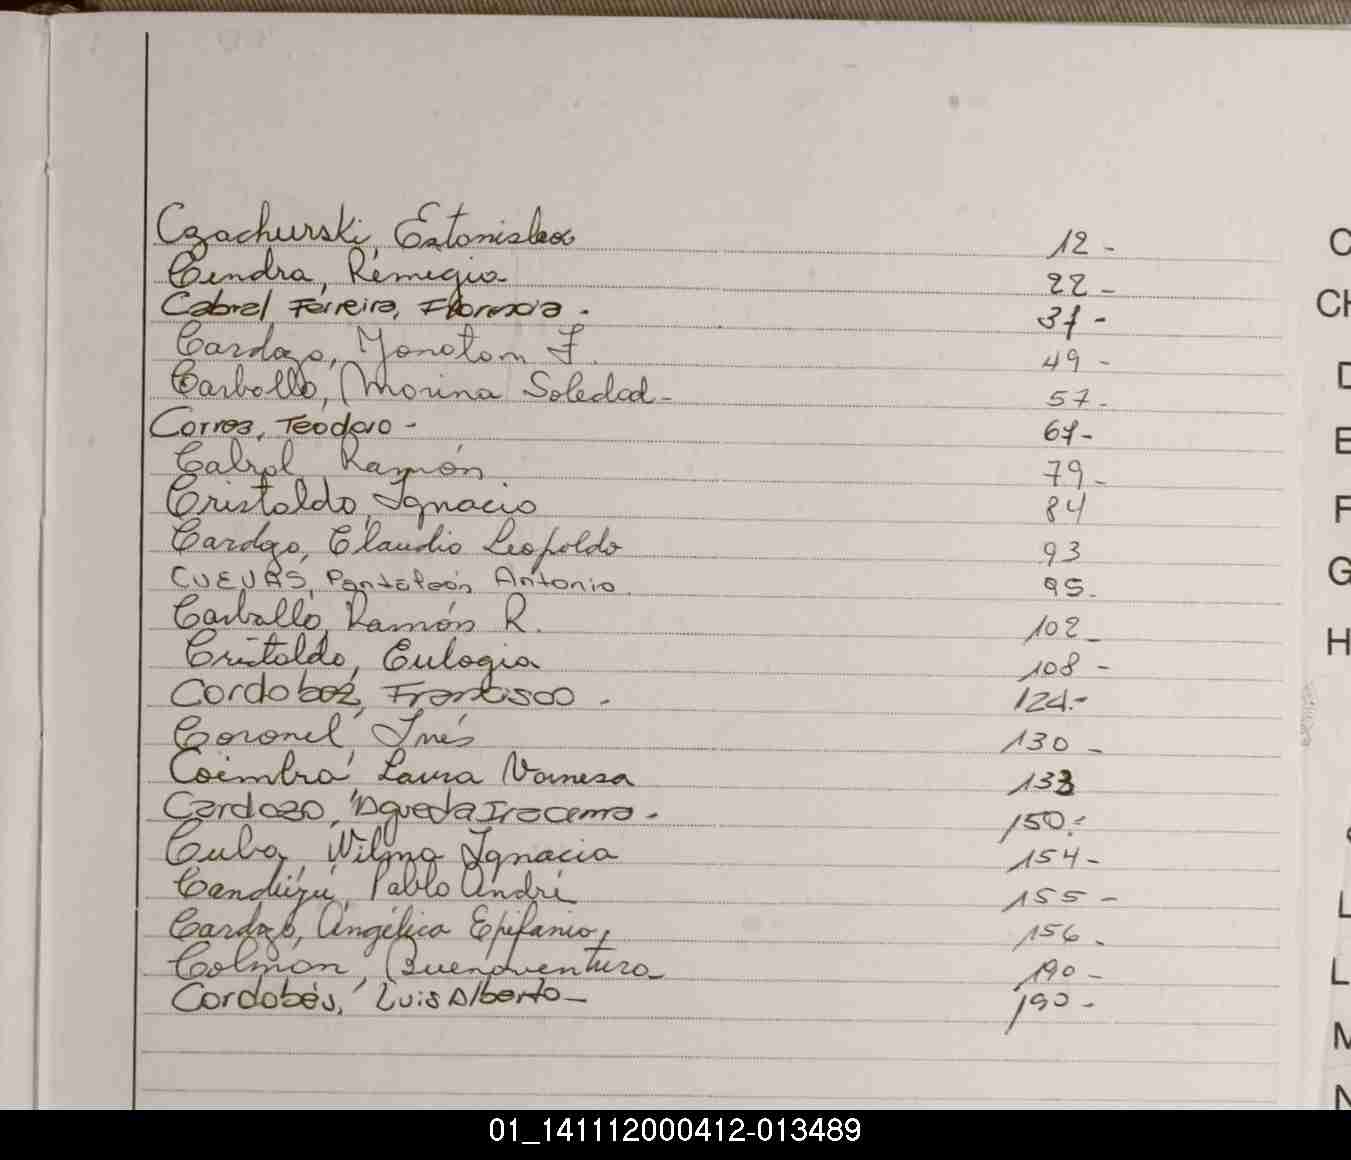 Czachurski, Estanislao 12 -
Cendra, Remigio 22 -
Cabral Ferreira, Florencia - 37 -
Cardozo, Jonatan F. 49 -
Carballo, Marina Soledad - 57 -
Correa, Teodoro - 67 -
Cabral Ramón 79 -
Cristaldo, Ignacio 84
Cardozo, Claudio Leopoldo 93
CUEVAS, Pantaleón Antonio. 95.
Carballo, Ramón R. 102 -
Cristaldo, Eulogia 108 -
Cordobez, Francisco - 124 -
Coronel, Inés 130 -
Coimbra, Laura Vanesa 133
Cardozo, Agueda Iracema - 150 -
Cuba, Wilma Ignacia 154 -
Pablo André 155 -
Cardozo, Angélica Epifania, 156 -
Colman, Buenaventura 190 -
Cordobés, Luis Alberto - 190 -
C
CH
D
E
F
G
H
L
L
M
N
01_141112000412-013489